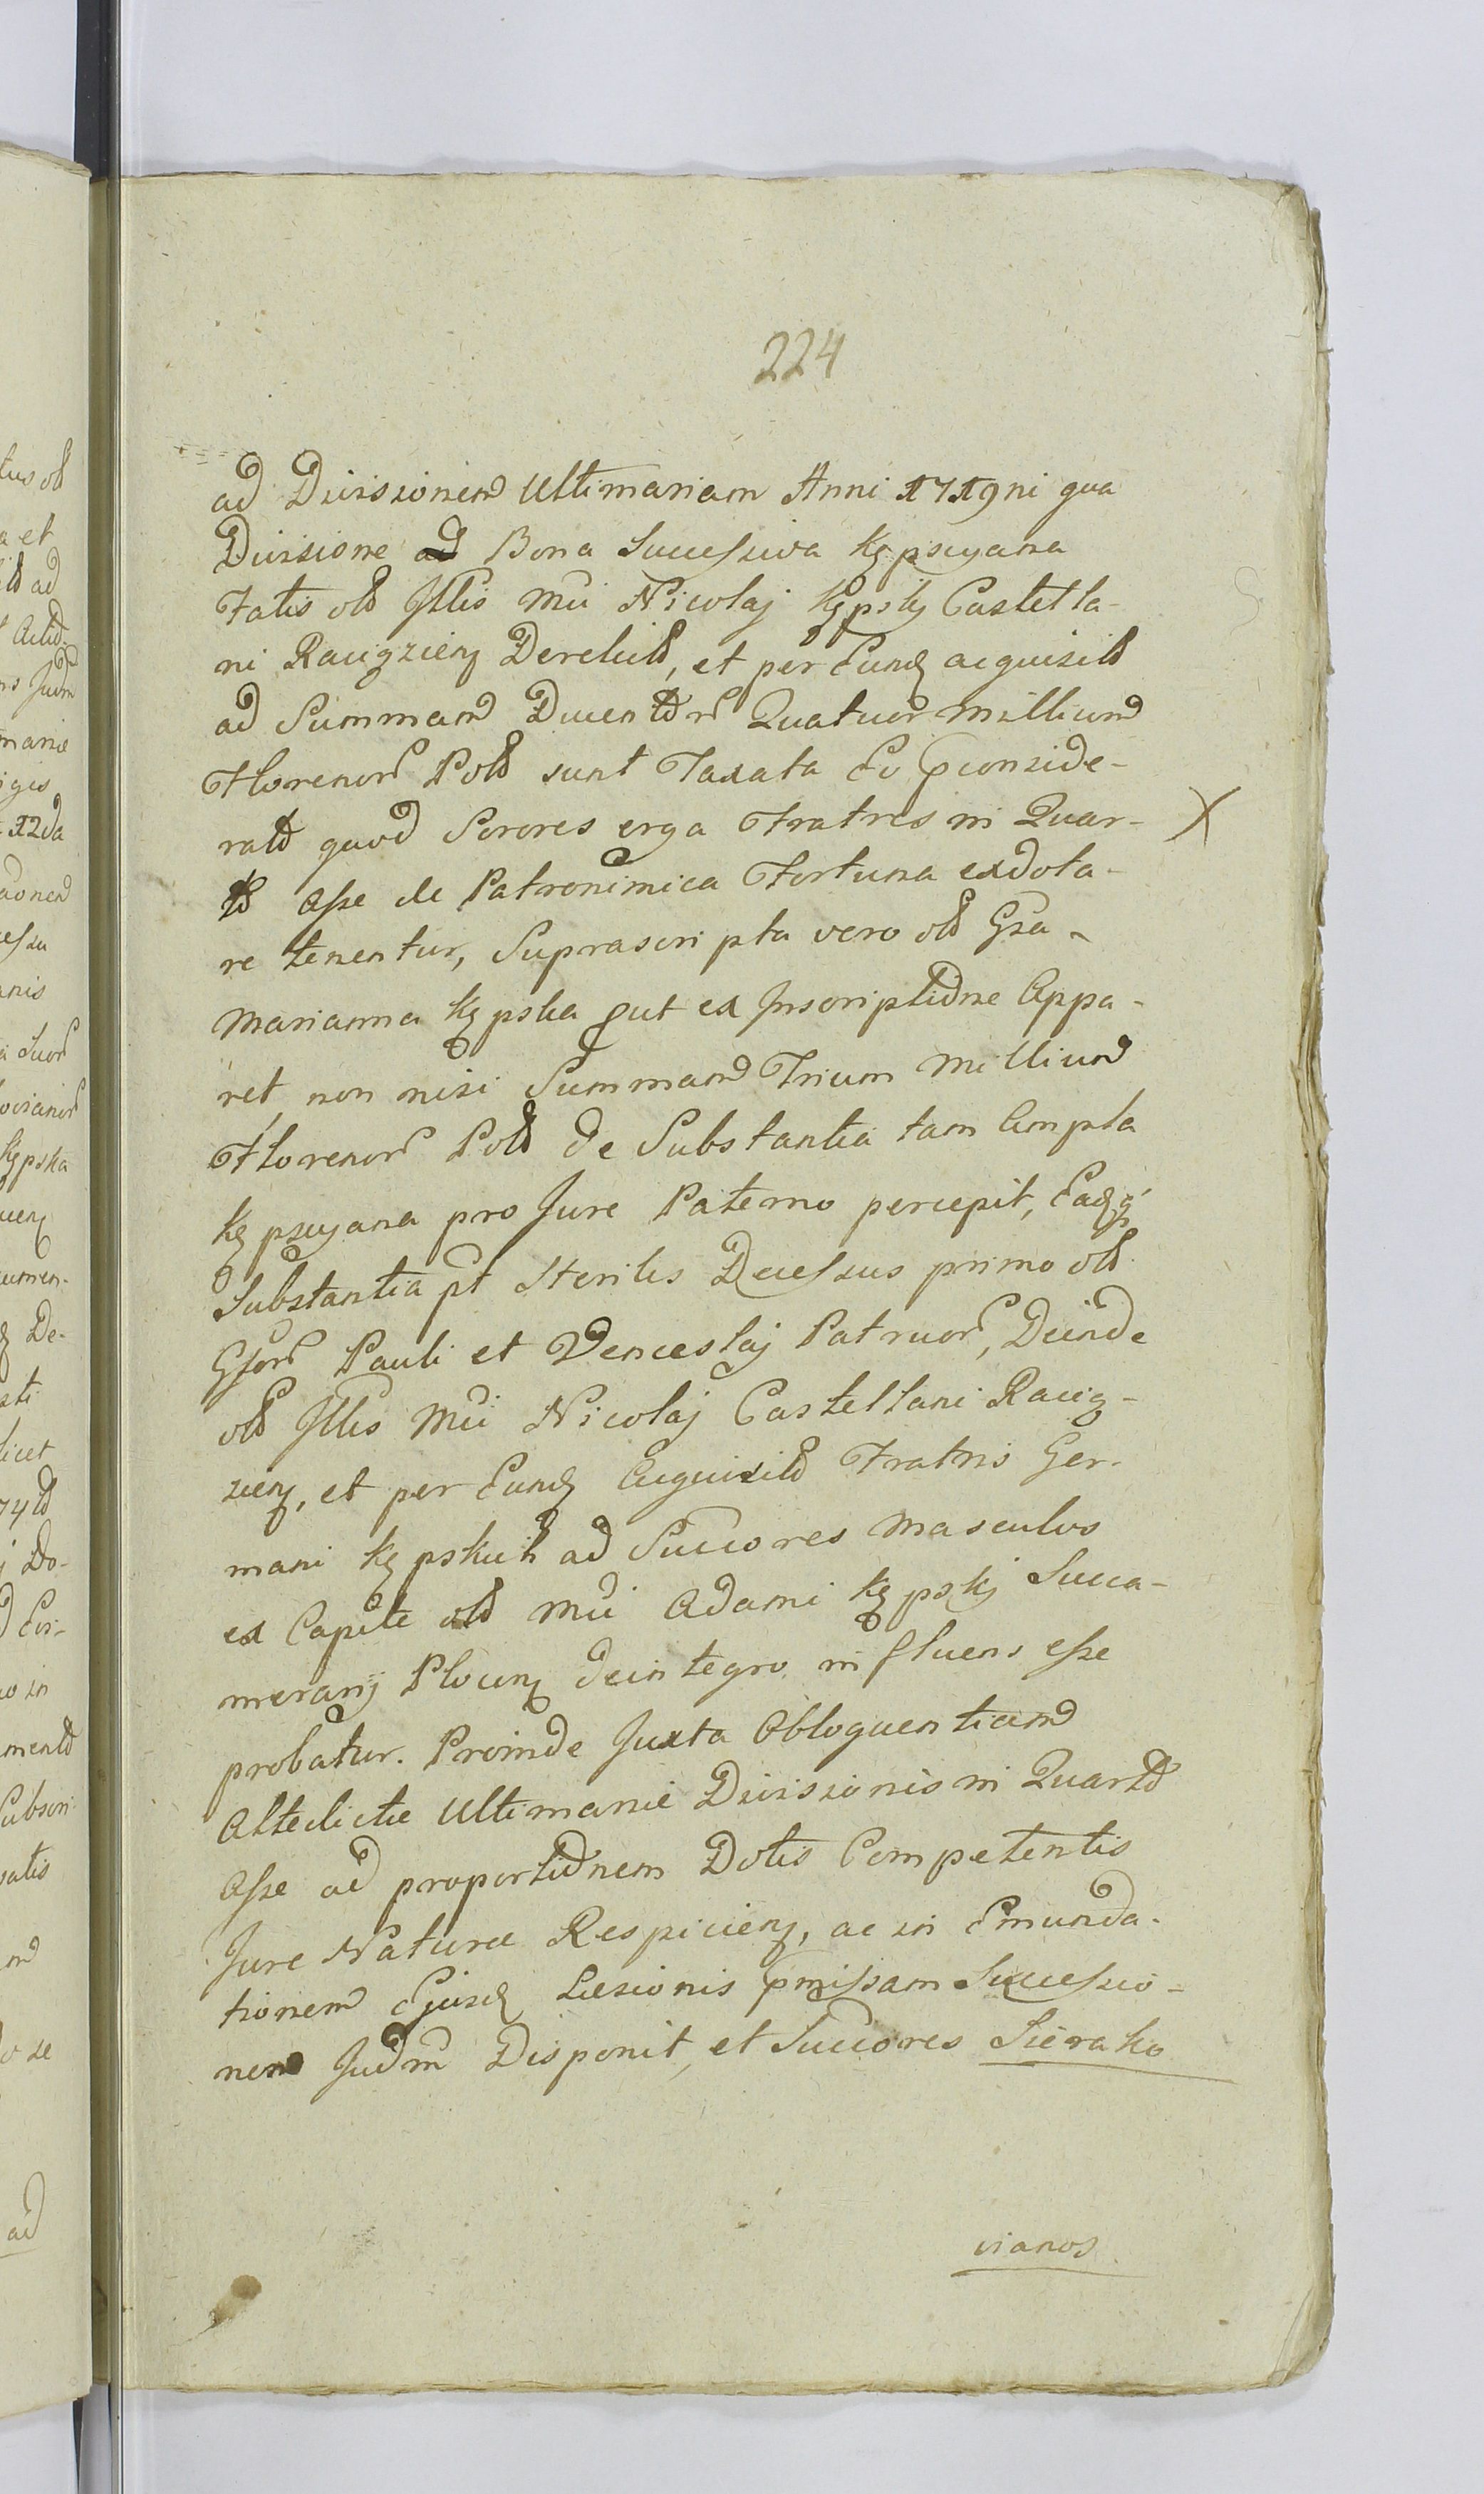 224
ad Divisionem Ultimariam Anni 1719ni qua
Divisione ad Bona Successiva Kępscyana
Fatis old Jllis Mci Nicolaj Kępskj Castella-
ni Raciązien Derelict, et per Eund acquisit
ad Summam Ducentor Quatuor Millium
Florenor Pold sunt Taxata Eo conside-
rato quod Sorores erga Fratres in Quar-
to Asse de Patronimica Fortuna exdota-
re tenentur, Suprascripta vero old Gsa
Marianna Kępska put ex Jnscriptione Appa-
ret, non nisi Summam Trium Millium
Florenor Pold de Substantia tam Ampla
Kępscyana pro Jure Paterno percepit, Eadq
Substantia pt Sterilis Decessus primo old
Gsor Pauli et Venceslaj Patruor, Deinde
old Jllis Mci Nicolaj Castellani Raciąz-
zien, et per Eund Acquisito Fratris Ger-
mani Kępskich ad Succores Masculos
ex Capite old Mci Adami Kępskj Succa-
merarij Plocen deintegro influens esse
probatur. Proinde Juxta Obloquentiam
Altedictae Ultimariae Divisionis in Quarto
Asse ad proportionem Dotis Competentis
Jure Naturae Respicien, ac in Emunda-
tionem Ejusd Laesionis pmissam Successio-
nem Judm Disponit, et Succores Sierako
vianos